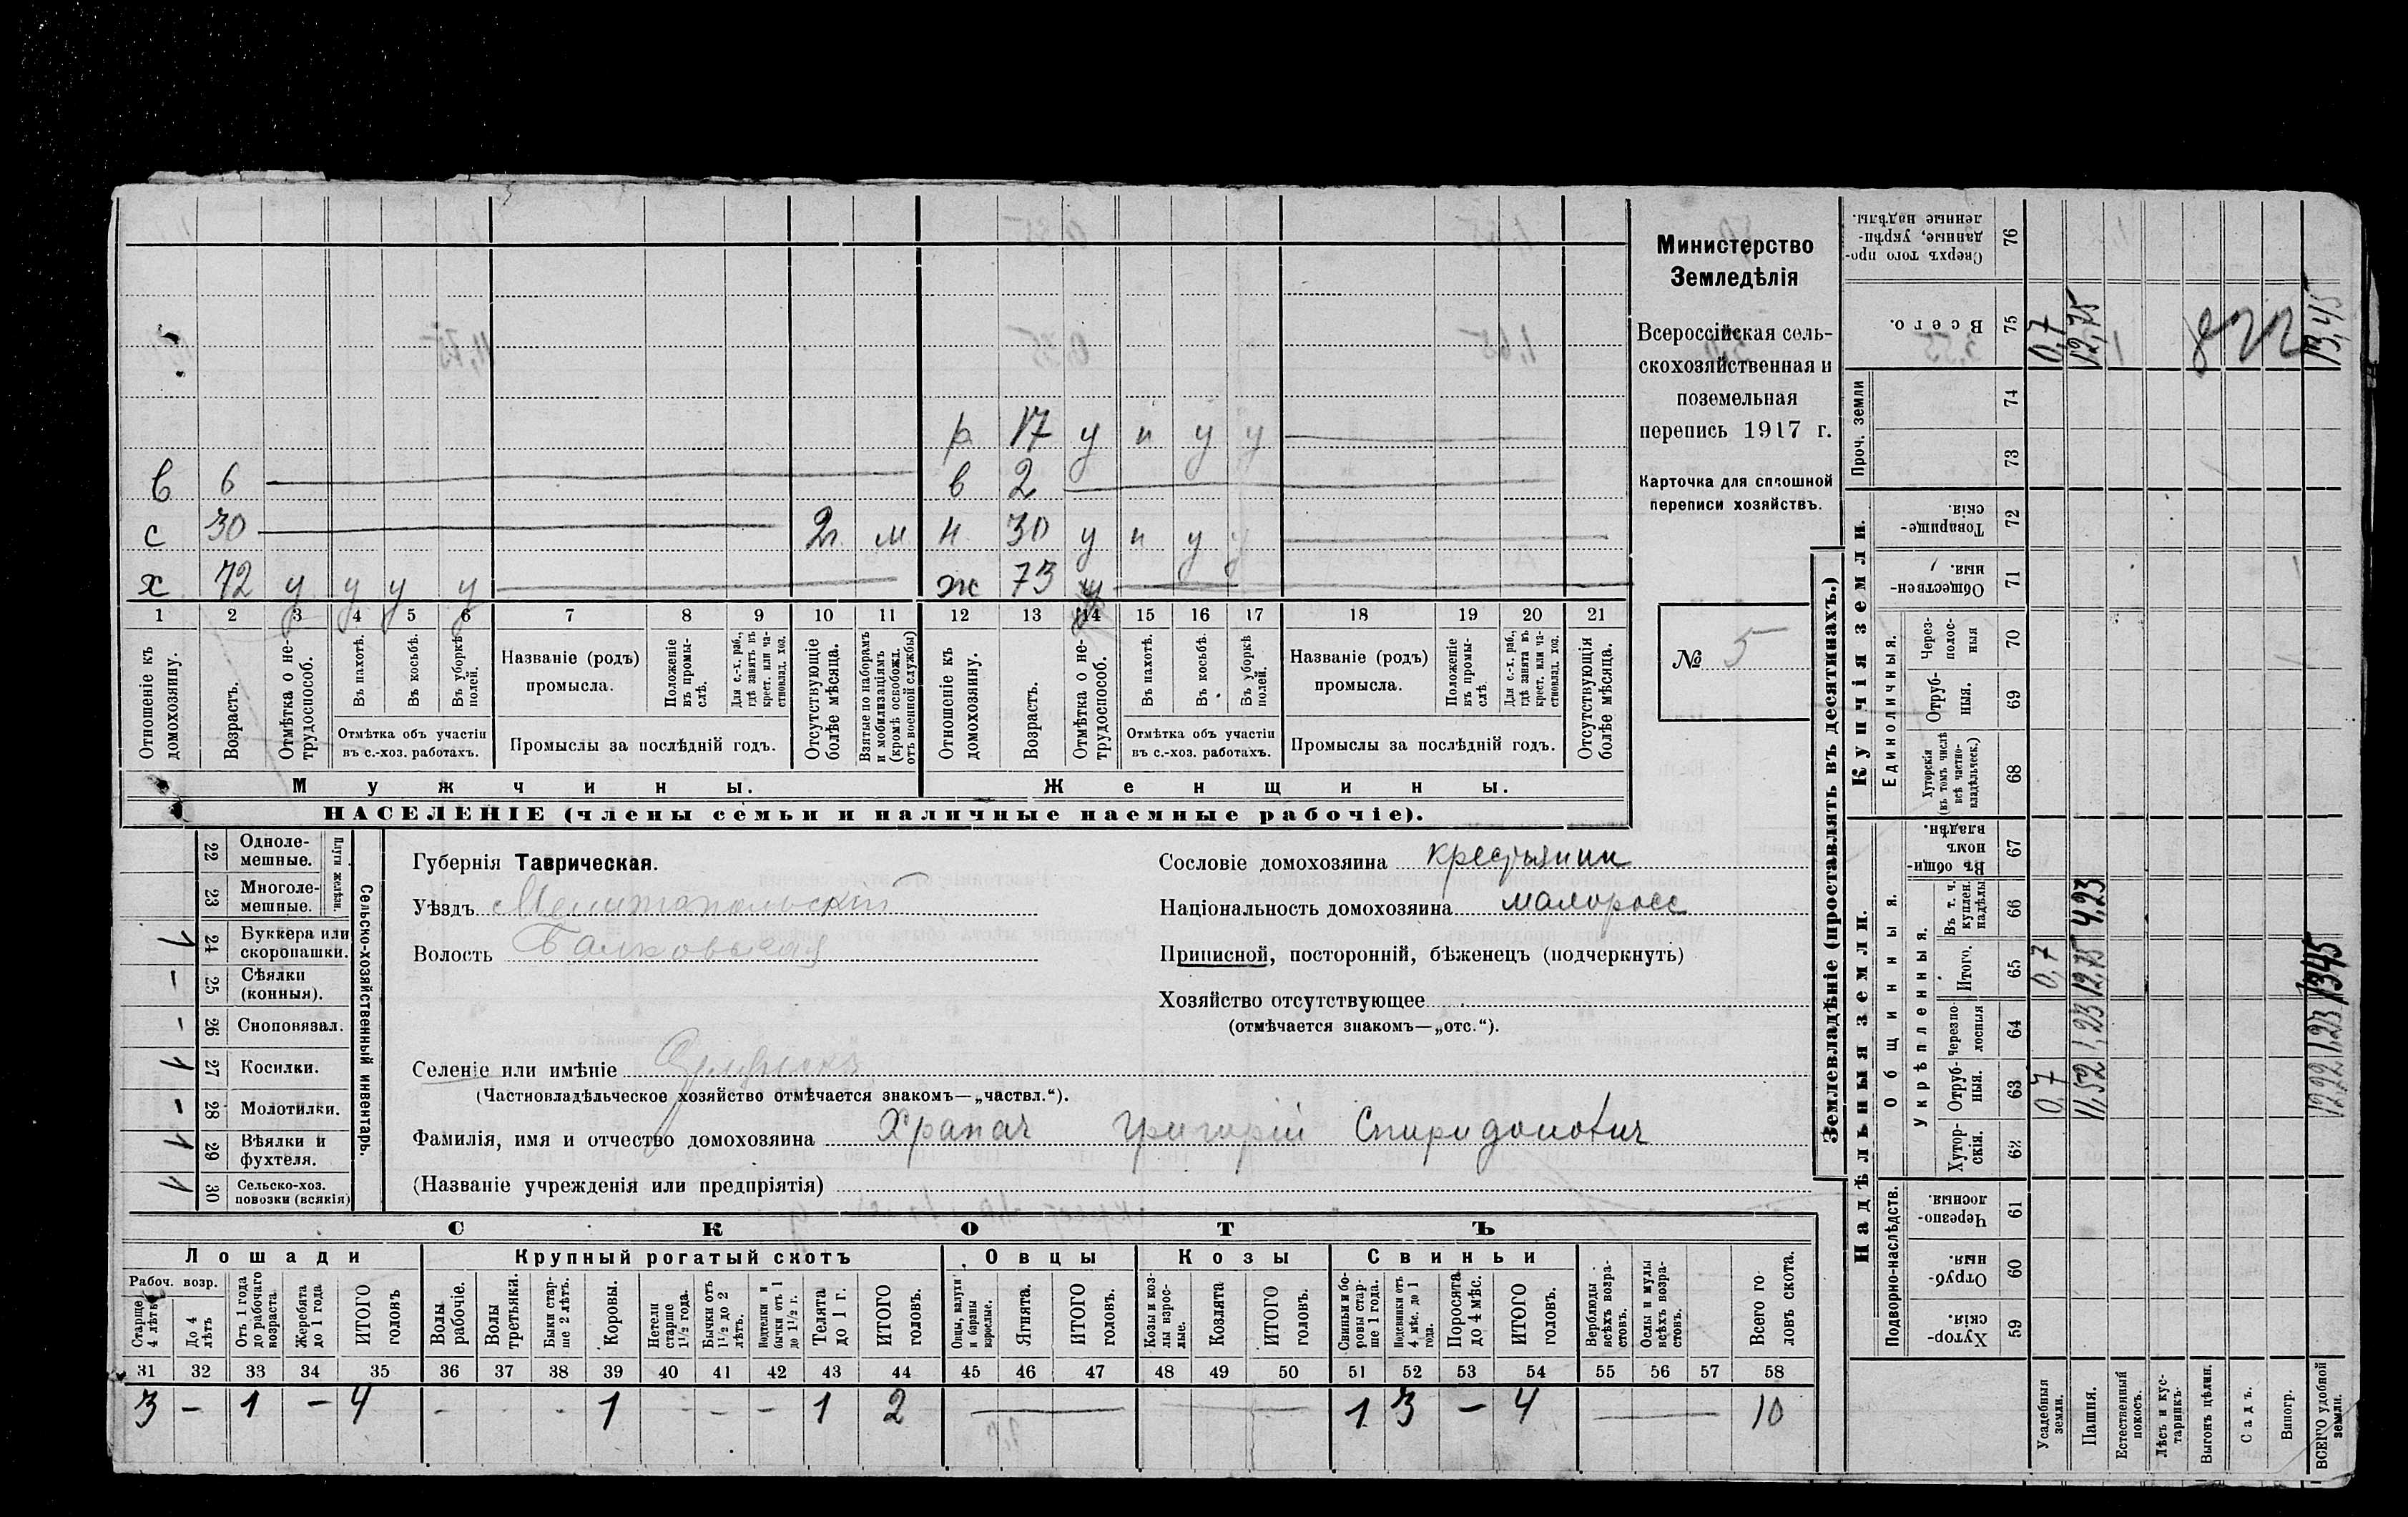 р 17 у п у у
в 6 в 2
с 30 2г. м н 30 у п у у
х 72 у у у у ж 73 у
1 2 3 4 5 6 7 8 9 10 11 12 13 14 15 16 17 18 19 20 21
Отношеніе къ домохозяину.
Возрастъ.
Отмѣтка о не-
трудоспособ.
Въ пахотѣ.
Въ косьбѣ.
Въ уборкѣ
полей.
Отмѣтка объ участіи
въ с.-хоз. работахъ.
Названіе (родъ)
промысла.
Положеніе
въ промы-
слѣ.
Для с.-х. раб.,
гдѣ занятъ въ
крест. или ча-
стновлад. хоз.
Промыслы за послѣдній годъ.
Отсутствующіе
болѣе мѣсяца.
Взятые по наборамъ
и мобилизаціямъ
(кромѣ освобожд.
отъ военной службы)
Отношеніе къ
домохозяину.
Возрастъ.
Отмѣтка о не-
трудоспособ.
Въ пахотѣ.
Въ косьбѣ.
Въ уборкѣ
полей.
Отмѣтка объ участіи
въ с.-хоз. работахъ.
Названіе (родъ)
промысла.
Положеніе
въ промы-
слѣ
Для с.-х. раб.,
гдѣ занята въ
крест. или ча-
стновлад. хоз.
Промыслы за послѣдній годъ.
Отсутствующія
болѣе мѣсяца.
Мужчины. Женщины.
НАСЕЛЕНІЕ (члены семьи и наличные наемные рабочіе).
Министерство
Земледѣлія
Всероссійская сель-
скохозяйственная и
поземельная
перепись 1917 г.
Карточка для сплошной
переписи хозяйствъ.
№ 5
Сельско-хозяйственный инвентарь.
Плуги желѣзн.
22 Одноле-
мешные.
23 Многоле-
мешные.
1 24 Буккера или
скоропашки.
- 25 Сѣялки
(конныя).
- 26 Сноповязал.
1 27 Косилки.
- 28 Молотилки.
1 29 Вѣялки и
фухтеля.
1 30 Сельско-хоз.
повозки (всякія)
Губернія Таврическая.
Уѣздъ Мелитопольскій
Волость Балковская
Селеніе или имѣніе
(Частновладѣльческое хозяйство отмѣчается знакомъ—„частвл.“).
Фамилія, имя и отчество домохозяина Храпач Григорій Спиридонович
(Названіе учрежденія или предпріятія)
Сословіе домохозяина крестьянин
Національность домохозяина малоросс
Приписной, посторонній, бѣженецъ (подчеркнуть)
Хозяйство отсутствующее
(отмѣчается знакомъ—„отс.“).
СКОТЪ
Лошади Крупный рогатый скотъ Овцы Козы Свиньи
Рабоч. возр.
Старше
4 лѣтъ
До 4
лѣтъ
Отъ 1 года
до рабочаго
возраста.
Жеребята
до 1 года
ИТОГО
головъ
Волы
рабочіе.
Волы
третьяки.
Быки стар-
ше 2 лѣтъ.
Коровы.
Нетели
старше
1½ года.
Бычки отъ
1½ до 2
лѣтъ.
Подтелки и
бычки отъ 1
до 1½ г.
Телята
до 1 г.
ИТОГО
головъ.
Овцы, валухи
и бараны
взрослые.
Ягнята.
ИТОГО
головъ.
Козы и коз-
лы взрос-
лые.
Козлята
ИТОГО
головъ.
Свиньи и бо-
ровы стар-
ше 1 года.
Подсвинки отъ
4 мѣс. до 1
года.
Поросята
до 4 мѣс.
ИТОГО
головъ.
Верблюды
всѣхъ возра-
стовъ.
Ослы и мулы
всѣхъ возра-
стовъ.
Всего го-
ловъ скота.
31 32 33 34 35 36 37 38 39 40 41 42 43 44 45 46 47 48 49 50 51 52 53 54 55 56 57 58
3 - 1 - 4 - - - 1 - - - 1 2 1 3 - 4 10
Землевладѣніе (проставлять въ десятинахъ.)
Надѣльныя земли. Купчія земли. Проч. земли
Подворно-наслѣдств.
Общинныя.
Укрѣпленныя.
Единоличныя.
Хутор-
скія. 59
Отруб-
ныя. 60
Черезпо-
лосныя. 61
Хутор-
скія. 62
Отруб-
ныя. 63
Черезпо-
лосныя 64
Итого. 65
Въ т. ч.
куплен.
надѣлы 66
Въ общи-
номъ
владѣн. 67
Хуторскія
(въ томъ числѣ
всѣ частно-
владѣльческ.) 68
Отруб-
ныя. 69
Через-
полос-
ныя 70
Обществен-
ныя. 71
Товарище-
скія. 72
73
74
Всего. 75
Сверхъ того про-
данные, укрѣп-
ленные надѣлы. 76
Усадебныя
земли. 0,7 0,7 0,7
Пашня. 11,52 1,23 12,75 4,23 12,75
Естественный
покосъ.
Лѣсъ и кус-
тарникъ.
Выгонъ цѣлин.
Садъ.
Виногр.
ВСЕГО удобной
земли. 12,22 1,23 13,45 13,45